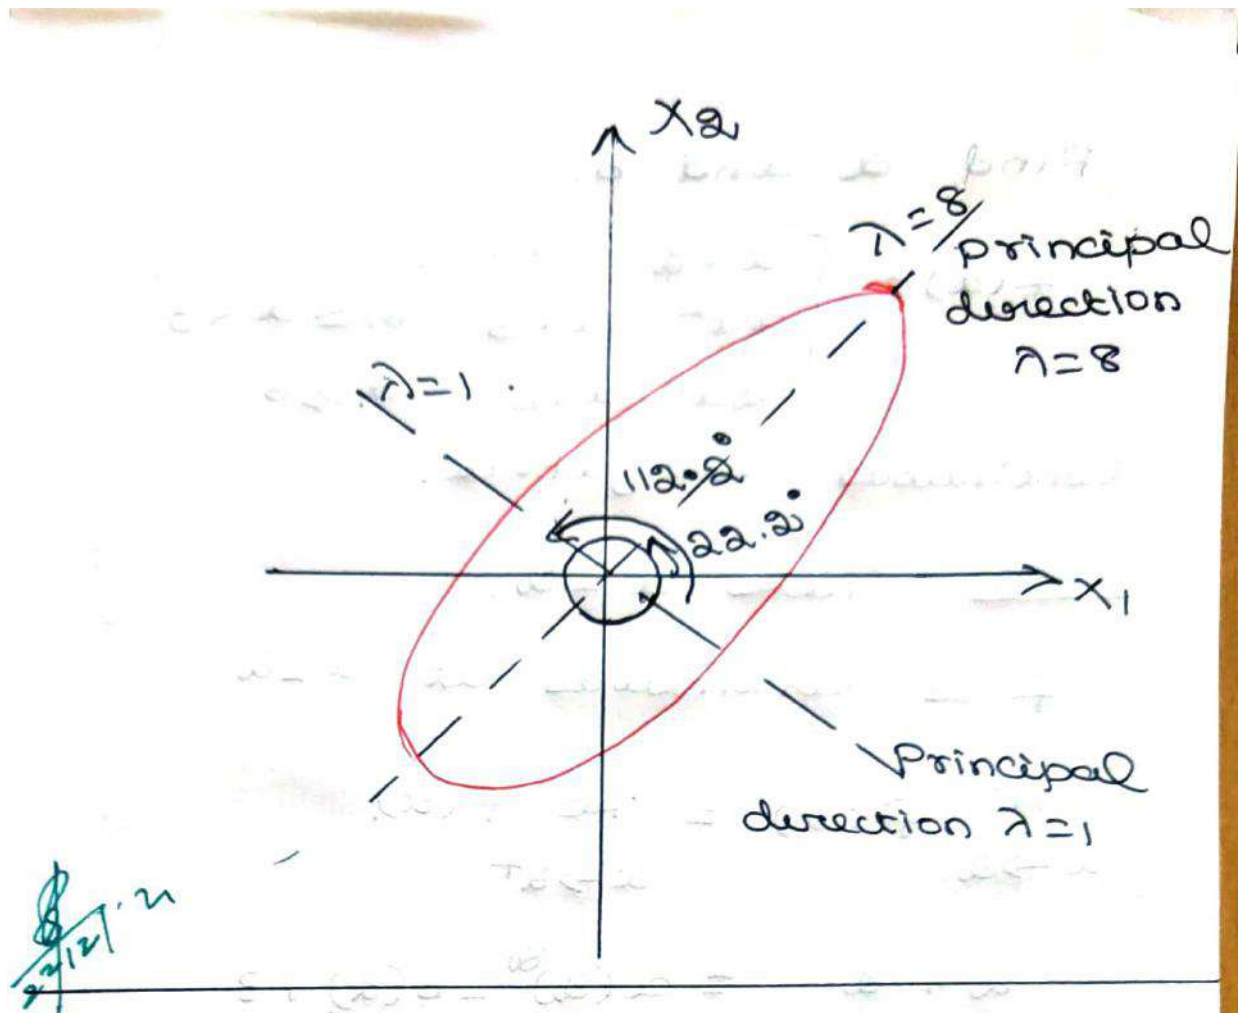 X2
λ=8
principal
direction
λ=8
λ=1
112.2°
22.2°
X1
Principal
direction λ=1